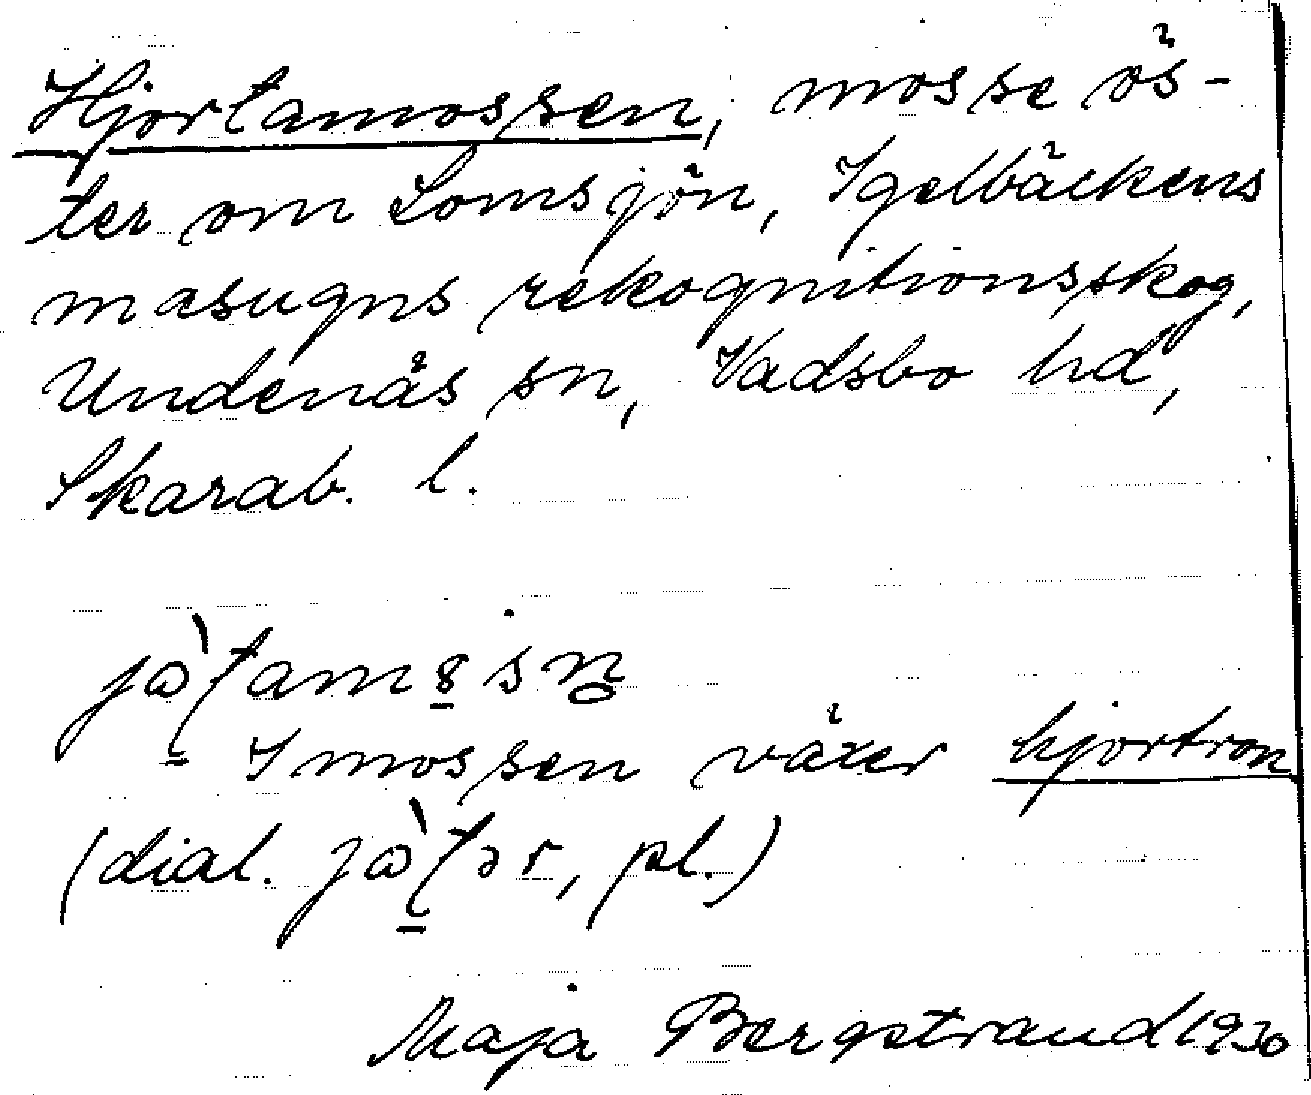 Hjortamossen, mosse ös-
ter om Lomsjön, Igelbäckens
masugns rekognitionsskog,
Undenäs sn, Vadsbo hd,
Skarab. l.
I mossen växer hjortron
(dial. , pl.)
Maja Bergstrand 1930